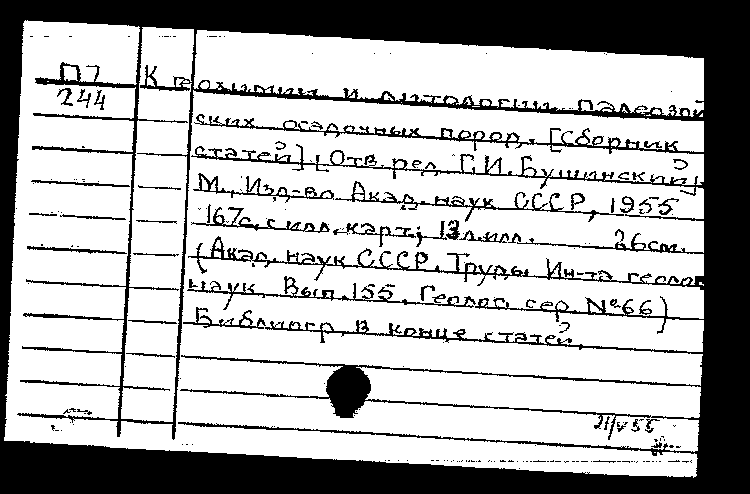 П7 К геохимии и литологии палеозой
244 ских осадочных пород. [Сборник
статей] [Отв. ред. Г. И. Бушинский]
М., Изд-во Акад. наук СССР, 1955
167с. с илл. карт; 13л. илл. 26см.
(Акад. наук СССР. Труды Ин-та геолог
наук. Вып. 155. Геолог. сер. №66)
Библиогр. в конце статей.
21/V 55